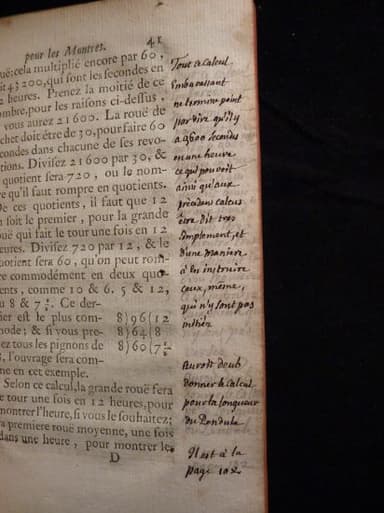 pour les Montres. 41
uë: cela multiplié encore par 60,
it 43200, qui font les secondes en
2 heures. Prenez la moitié de ce
ombre, pour les raisons ci-dessus,
vous aurez 21600. La rouë de
chet doit être de 30, pour faire 60
condes dans chacune de ses revo-
tions. Divisez 21600 par 30, &
quotient sera 720, ou le nom-
re qu'il faut rompre en quotients.
De ces quotients, il faut que 12
soit le premier, pour la grande
ouë qui fait le tour une fois en 12
eures. Divisez 720 par 12, & le
uotient sera 60, qu'on peut rom-
re commodément en deux quo-
ents, comme 10 & 6, 5 & 12,
u 8 & 7 1/2. Ce der-
ier est le plus com- 8)96(12
mode; & si vous pre- 8)64(8
ez tous les pignons de 8)60(7 1/2
8, l'ouvrage sera com-
me en cet exemple.
Selon ce calcul, la grande rouë fera
e tour une fois en 12 heures, pour
montrer l'heure, si vous le souhaitez;
a premiere rouë moyenne, une fois
dans une heure, pour montrer les
D
Tout ce calcul
Embarassant
ne trouvera point
par dire qu'il y
a 3600 secondes
en une heure
ce qui pouvoit
ainsi qu'aux
précédens calculs
être dit tres
simplement, et
d'une maniere
à en instruire
ceux, même,
qui n'y sont pas
initiés
auroit deub
donner le calcul
pour la longueur
du Pendule
Il est à la
page 102